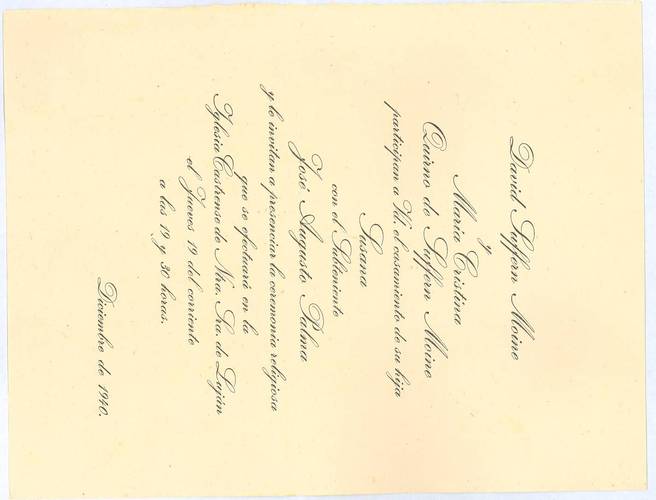 David Saffern Moine
y
María Cristina
Quirno de Saffern Moine
participan a Vd. el casamiento de su hija
Susana
con el Subteniente
José Augusto Palma
y lo invitan a presenciar la ceremonia religiosa
que se efectuará en la
Iglesia Castrense de Nra. Sa. de Luján
el Jueves 19 del corriente
a las 19 y 30 horas.
Diciembre de 1940.